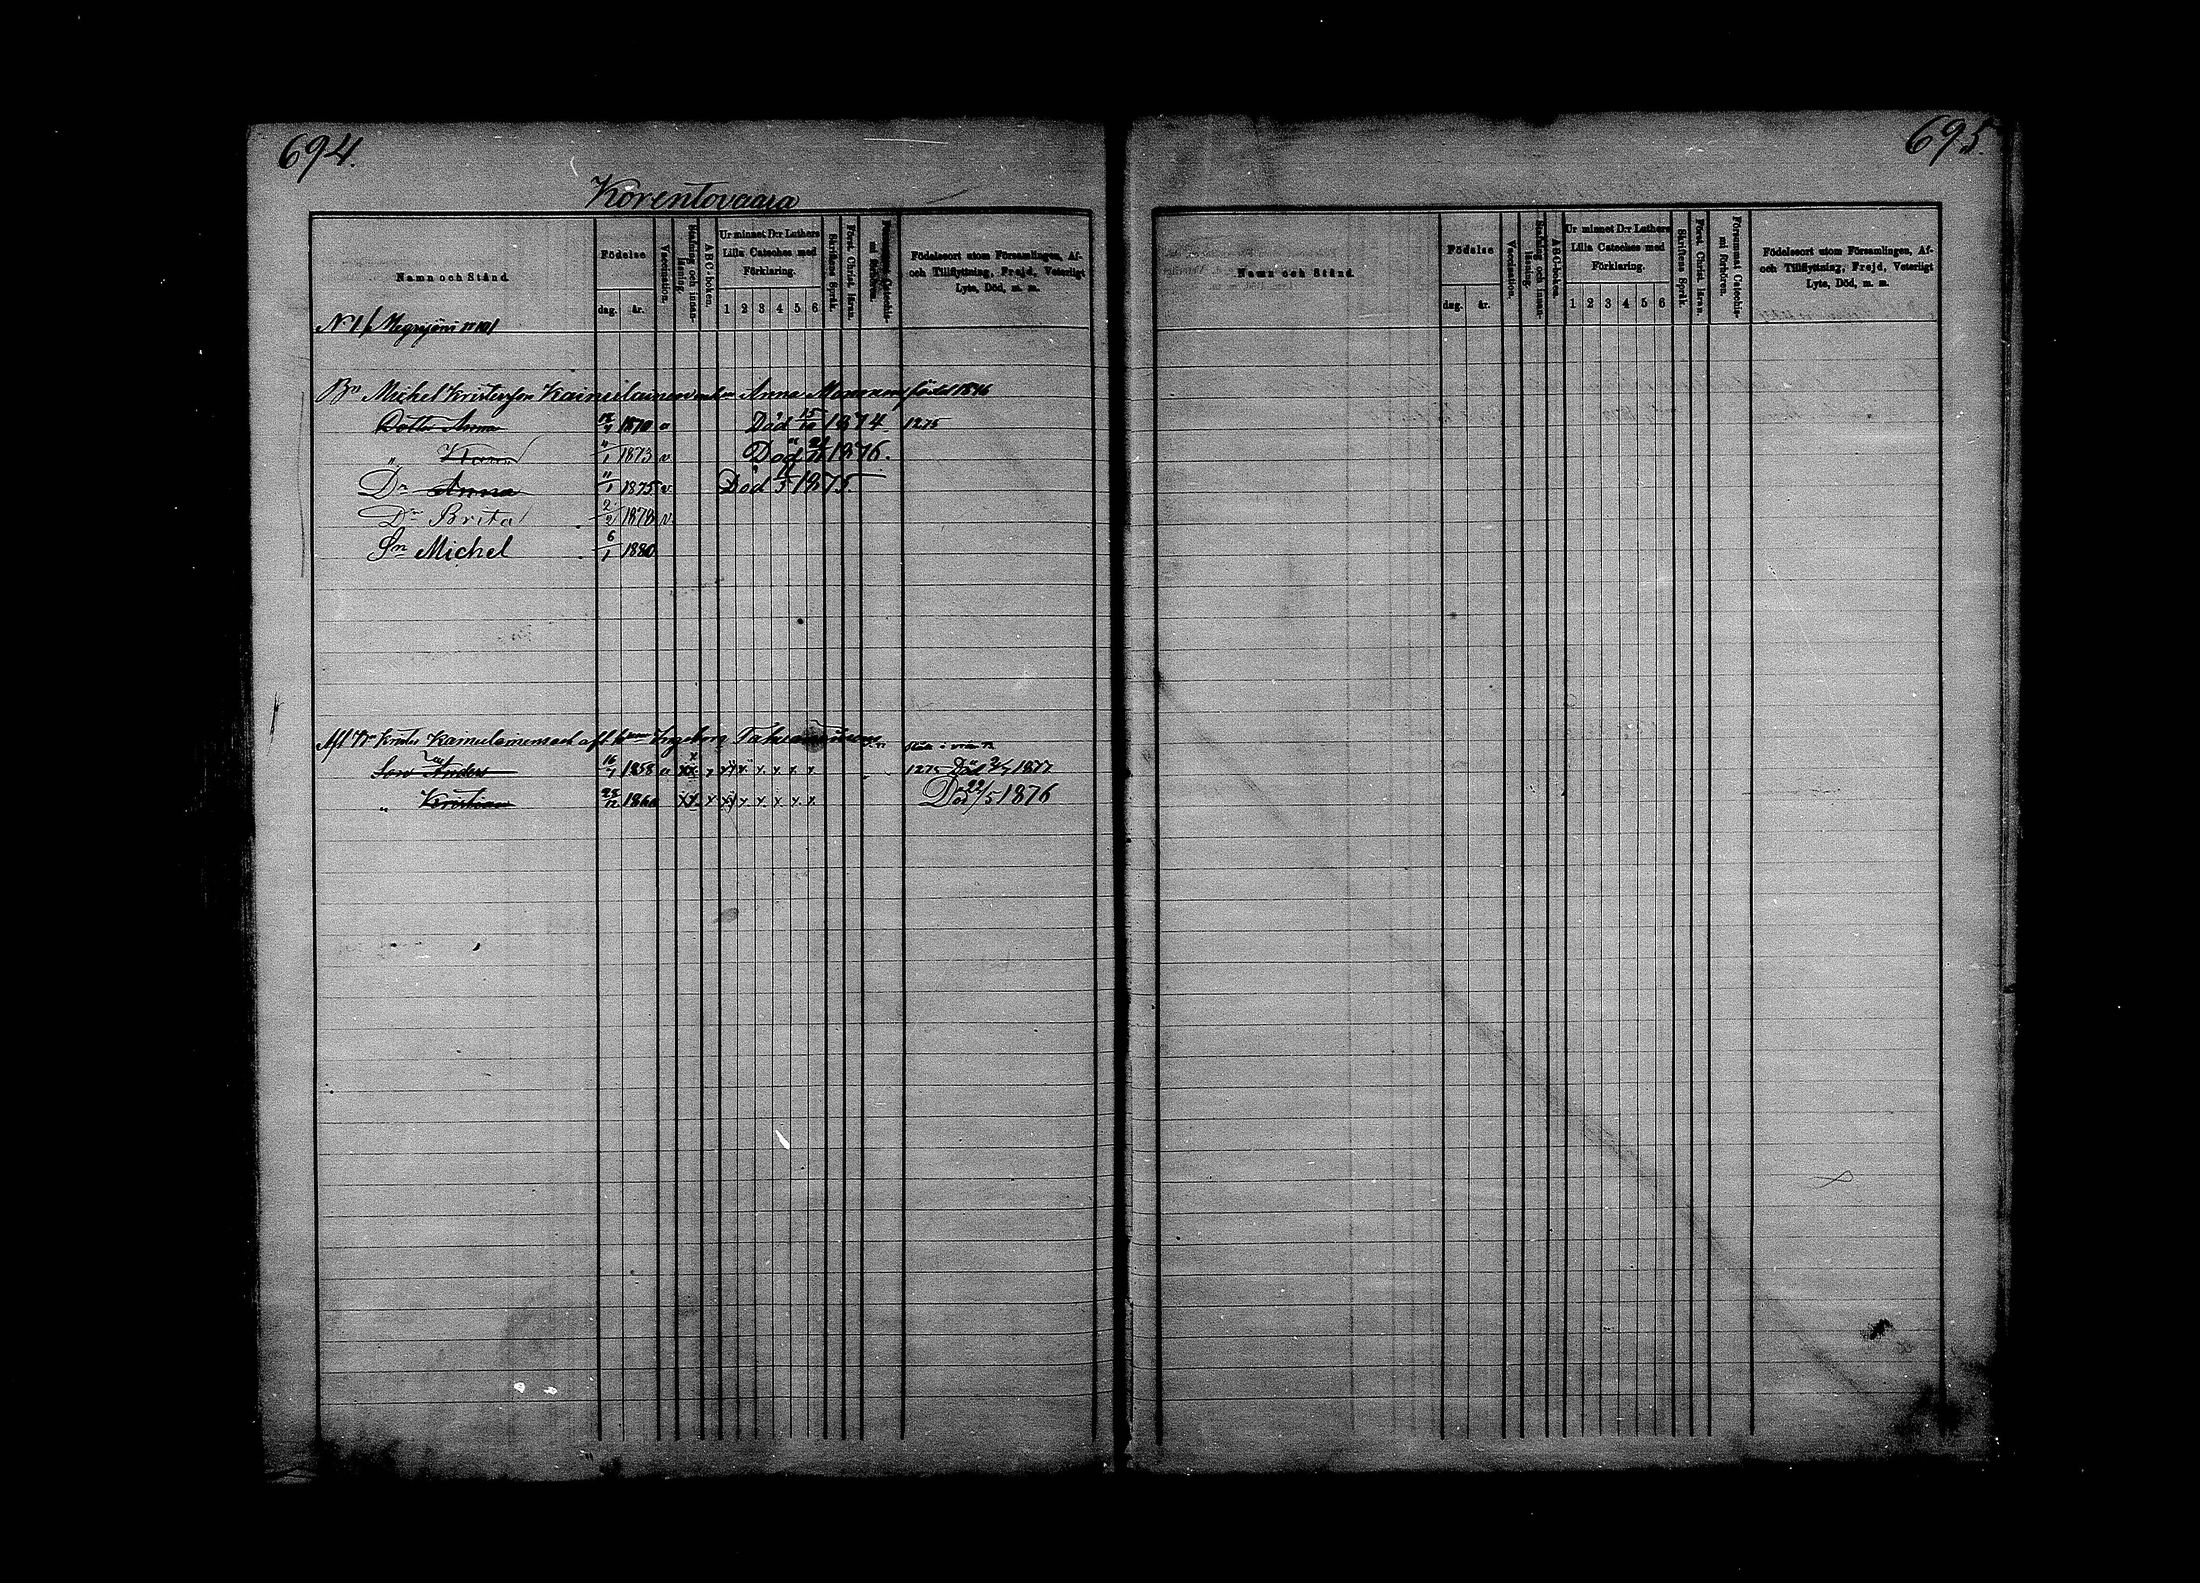 694.
Korentovaara
Namn och Stånd
Födelse
dag.
år.
Vaccination.
Stafning och innan-läsning.
ABC-boken.
Ur minnet D:r Luthers
Lilla Cateches med
Förklaring.
1 2 3 4 5 6
Skriftens Språk.
Först. Christ. läran.
Födelseort utom Församlingen, Af-
och Tillflyttning, Frejd, Veterligt
Lyte, Död, m. m.
N 1
Bn Michel Kristersson Kainulainen Anna född 1846
Dotter Anna 1870 v Död 15/10 1874 1275
„ 1873 v Död 1876.
Dr Anna "/1 1875 v Död 1875.
Dr Brita 2/2 1878 v
Sn Michel 6/1 1880
Afl Bn Krister Kainulainens och afl Ingeborg
Son Anders 16/1 1858 v x x x x x x 1275 Död 1877
„ Kristian 1860 x x x x x x Död 22/5 1876
695.
Namn och Stånd
Födelse
dag.
år.
Vaccination.
Stafning och innan-läsning.
ABC-boken.
Ur minnet D:r Luthers
Lilla Cateches med
Förklaring.
1 2 3 4 5 6
Skriftens Språk.
Först. Christ. läran.
Försummat Catechis-mi förhören.
Födelseort utom Församlingen, Af-
och Tillflyttning, Frejd, Veterligt
Lyte, Död, m. m.